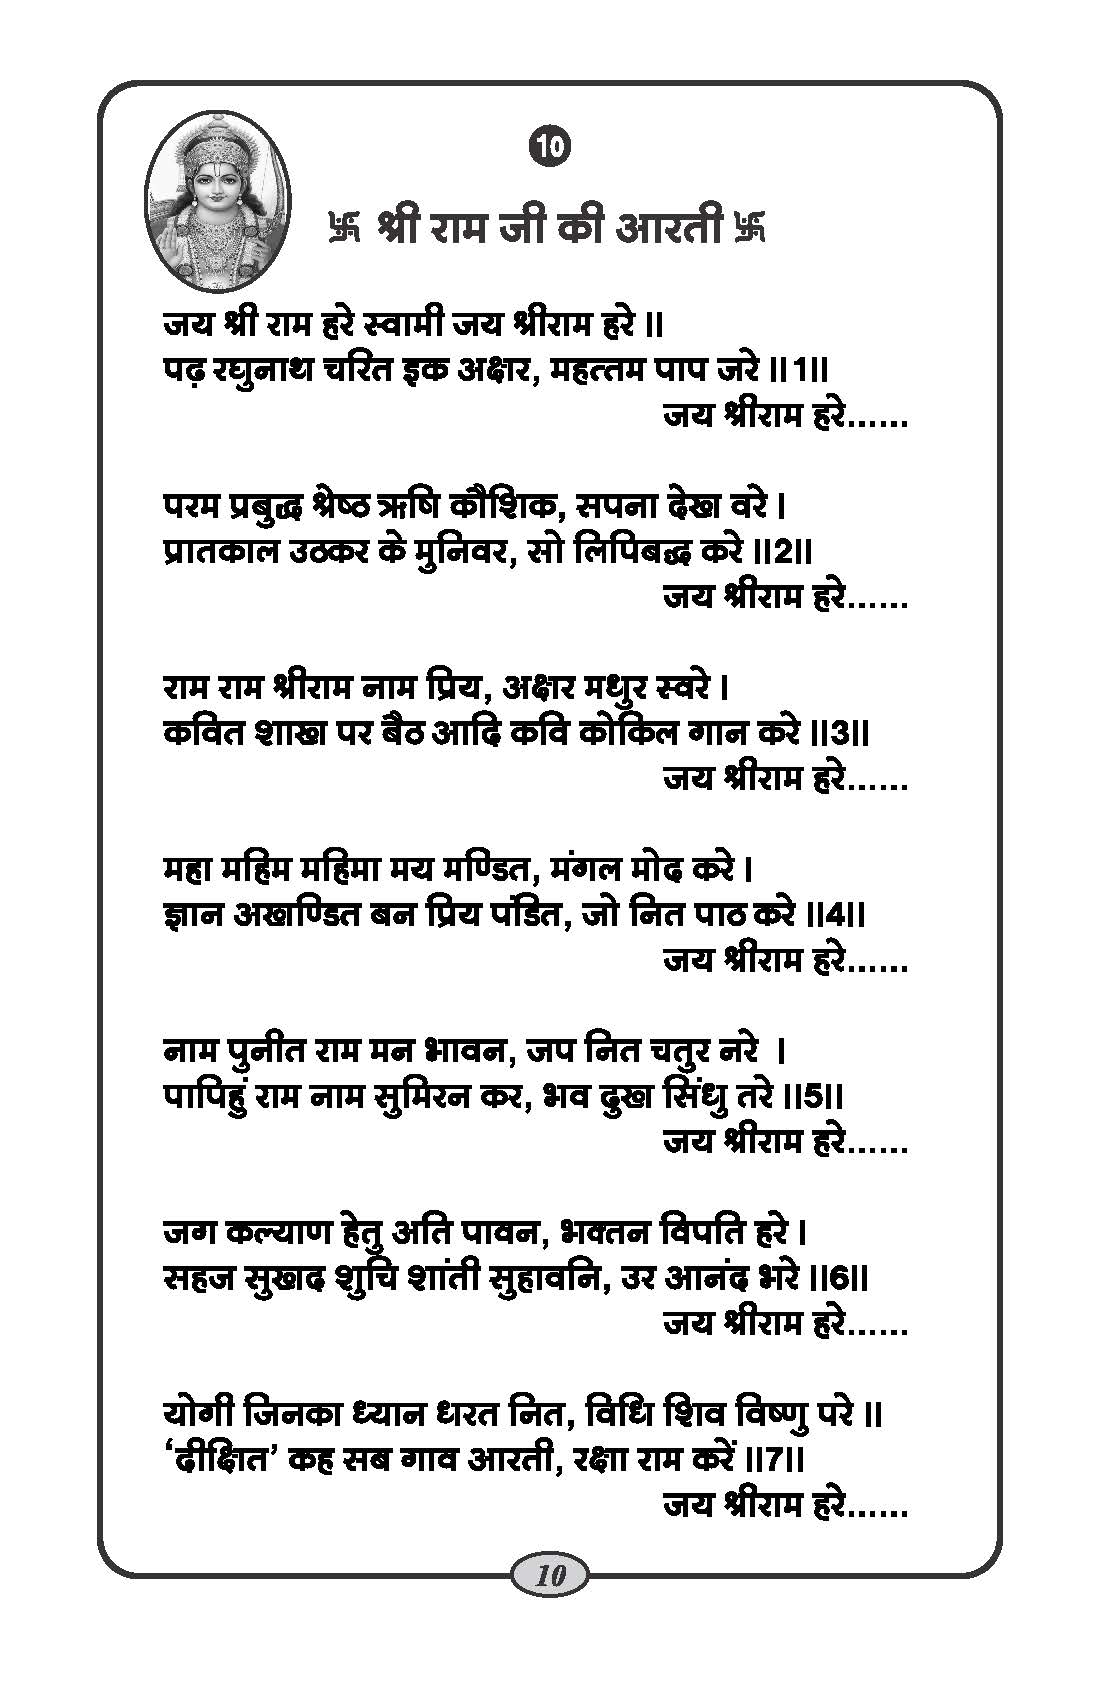 10
卐 श्री राम जी की आरती 卐
जय श्री राम हरे स्वामी जय श्रीराम हरे ॥
पढ़ रघुनाथ चरित इक अक्षर, महत्तम पाप जरे ॥1॥
जय श्रीराम हरे......
परम प्रबुद्ध श्रेष्ठ ऋषि कौशिक, सपना देखा वरे ।
प्रातकाल उठकर के मुनिवर, सो लिपिबद्ध करे ॥2॥
जय श्रीराम हरे......
राम राम श्रीराम नाम प्रिय, अक्षर मधुर स्वरे ।
कवित शाखा पर बैठ आदि कवि कोकिल गान करे ॥3॥
जय श्रीराम हरे......
महा महिम महिमा मय मण्डित, मंगल मोद करे ।
ज्ञान अखण्डित बन प्रिय पंडित, जो नित पाठ करे ॥4॥
जय श्रीराम हरे......
नाम पुनीत राम मन भावन, जप नित चतुर नरे ।
पापिहुं राम नाम सुमिरन कर, भव दुख सिंधु तरे ॥5॥
जय श्रीराम हरे......
जग कल्याण हेतु अति पावन, भक्तन विपति हरे ।
सहज सुखद शुचि शांती सुहावनि, उर आनंद भरे ॥6॥
जय श्रीराम हरे......
योगी जिनका ध्यान धरत नित, विधि शिव विष्णु परे ॥
‘दीक्षित’ कह सब गाव आरती, रक्षा राम करें ॥7॥
जय श्रीराम हरे......
10